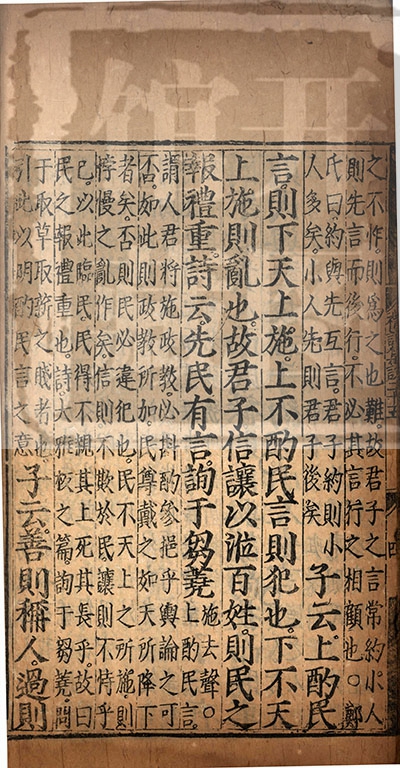 之不怍則為之也難故君子之言常約小人
則先言而後行不必其言行之相顧也○鄭
氏曰約與先互言君子約則小
人多矣小人先則君子後矣
子云上酌民
言則下天上施上不酌民言則犯也下不天
上施則亂也故君子信讓以涖百姓則民之
報禮重詩云先民有言詢于芻蕘
施去聲○
上酌民言
謂人君將施政教必斟酌參挹乎輿論之可
否如此則政教所加民尊戴之如天所降下
者矣否則民必違犯也民不天上之所施則
悖慢之亂作矣信則不欺於民讓則不恃乎
己以此臨民民得不親其上死其長乎故曰
民之報禮重也詩大雅板之篇詢于芻蕘問
于取草取薪之賤者也
引此以明酌民言之意
子云善則稱人過則